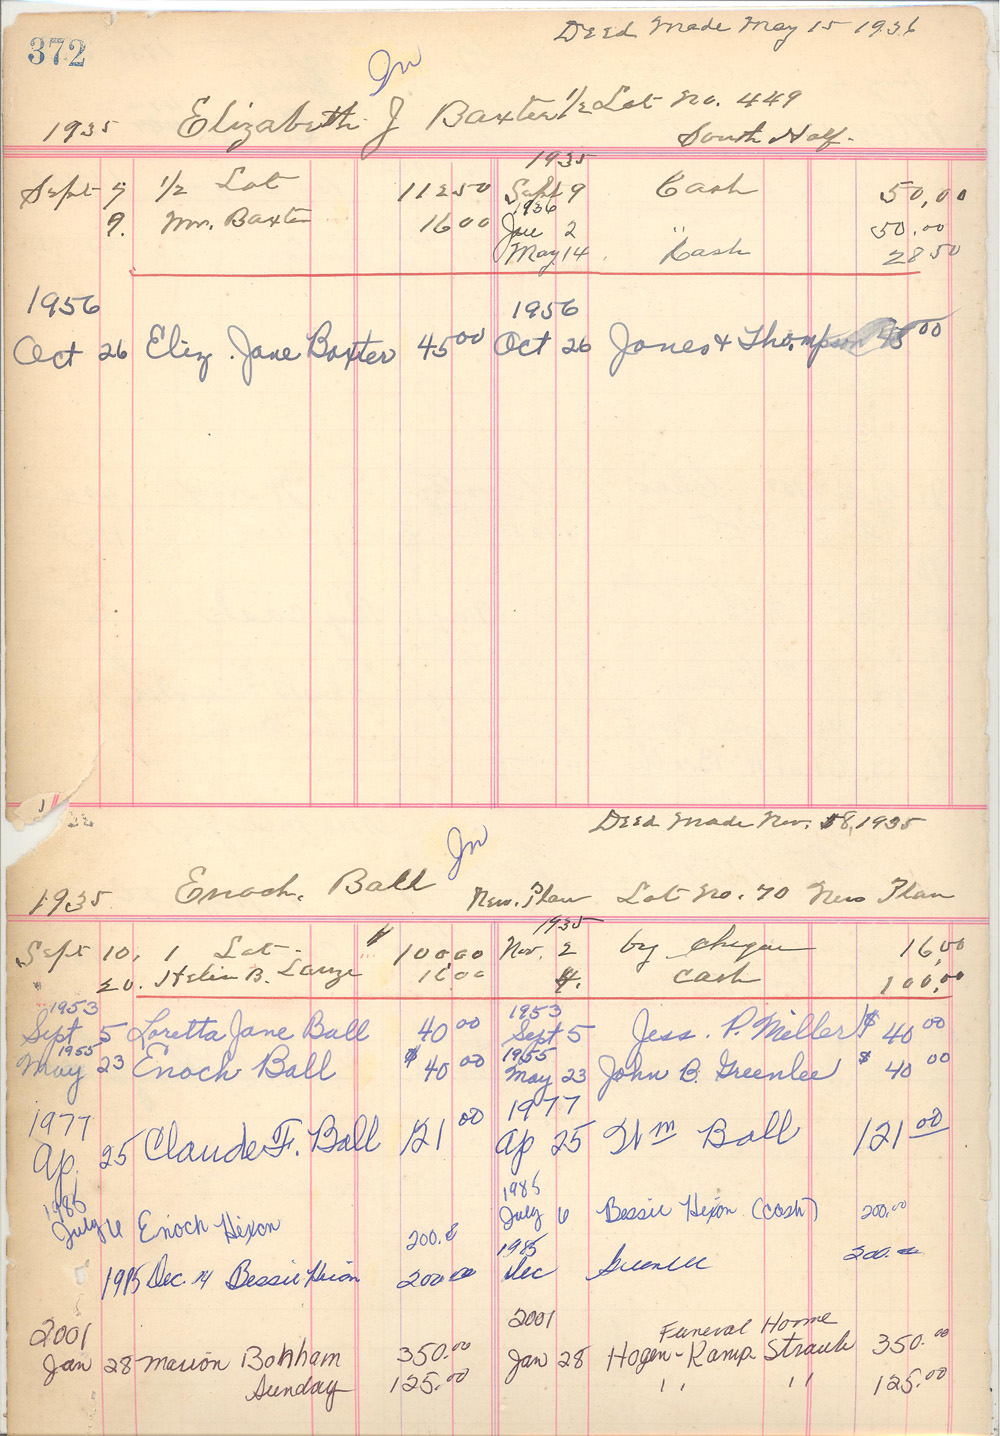 372
Deed Made May 15 1936
In
1935 Elizabeth J Baxter 1/2 Lot No. 449
South Half.
1935
Sept 7 1/2 Lot 112 50 Sept 9 Cash 50,00
1936
9. Mrs. Baxter 16 00 Jan 2 " 50.00
May 14 Cash 28 50
1956 1956
Oct 26 Eliz. Jane Baxter 45 00 Oct 26 Jones & Thompson 45 00
Deed Made Nov. 8, 1935
In
1935 Enoch. Ball New. Plan Lot No. 70 New Plan
1935
Sept 10, 1 Lot 100.00 Nov. 2 by cheque 16,00
20. Helen B. 16 00 4. Cash 100,00
1953 1953
Sept 5 Loretta Jane Ball 40 00 Sept 5 Jess. P. Miller $ 40 00
1955 1955
May 23 Enoch Ball $ 40 00 May 23 John B. Greenlee $ 40 00
1977 1977
Ap. 25 Claude F. Ball 121 00 Ap 25 Wm Ball 121 00
July 6 Enoch Hixon 200. July 6 Bessie Hixon (cash) 200.00
Dec. 14 Bessie Hixon 200 Dec Greenlee 200.
2001 2001
Funeral Home
Jan 28 Marion Bonham 350.00 Jan 28 Hogen-Kamp Straub 350.00
Sunday 125.00 " " 125.00